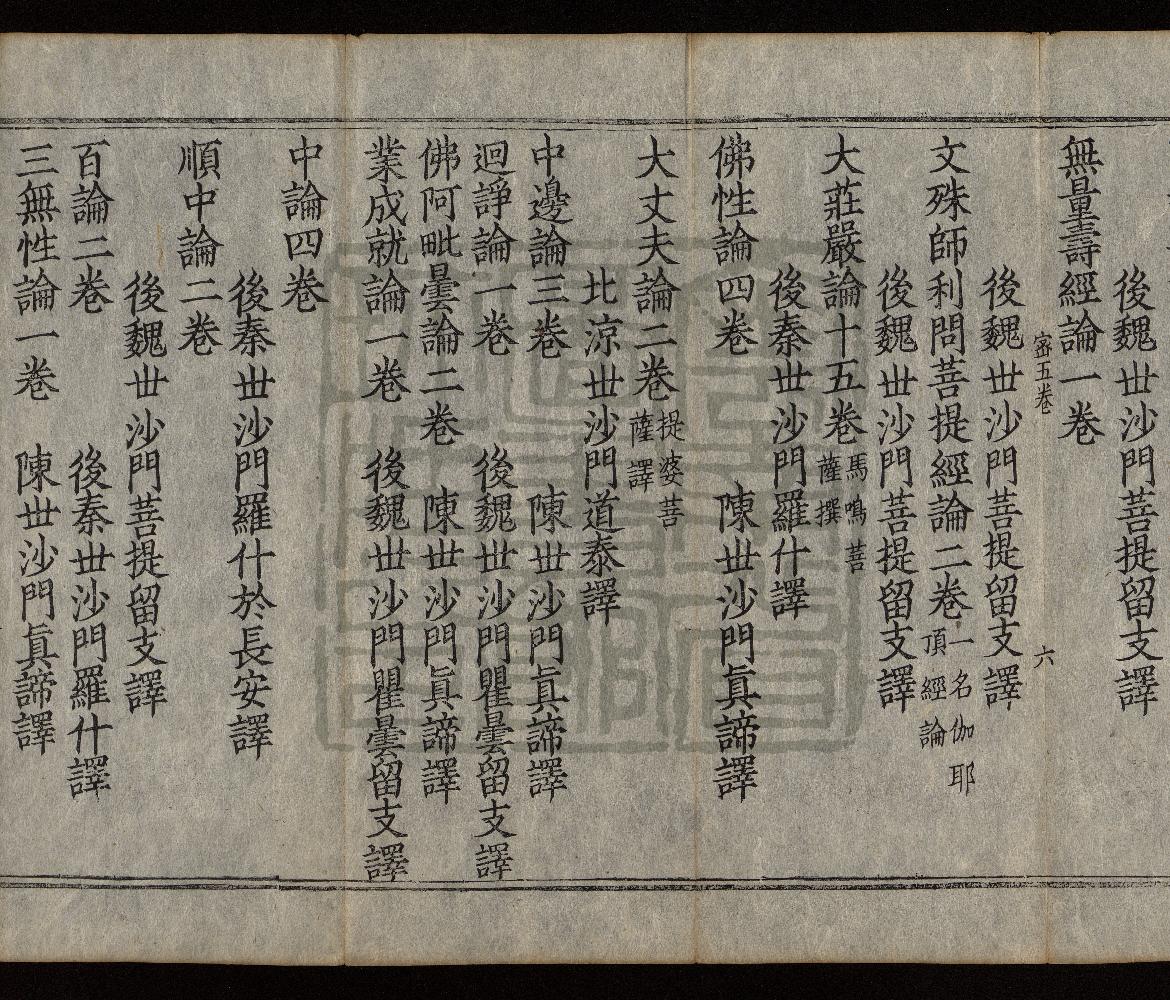 後魏世沙門菩提留支譯
無量壽經論一卷
密五卷 六
後魏世沙門菩提留支譯
文殊師利問菩提經論二卷一名伽耶頂經論
後魏世沙門菩提留支譯
大莊嚴論十五卷馬鳴菩薩撰
後秦世沙門羅什譯
佛性論四卷 陳世沙門真諦譯
大丈夫論二卷提婆菩薩譯
北涼世沙門道泰譯
中邊論三卷 陳世沙門真諦譯
迴諍論一卷 後魏世沙門瞿曇留支譯
佛阿毗曇論二卷 陳世沙門真諦譯
業成就論一卷 後魏世沙門瞿曇留支譯
中論四卷
後秦世沙門羅什於長安譯
順中論二卷
後魏世沙門菩提留支譯
百論二卷 後秦世沙門羅什譯
三無性論一卷 陳世沙門真諦譯